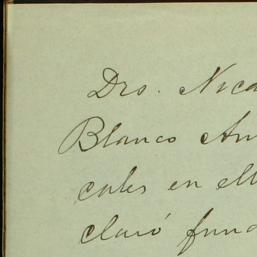 Drs. Nica
Blanco Am
cales en ell
claró fund